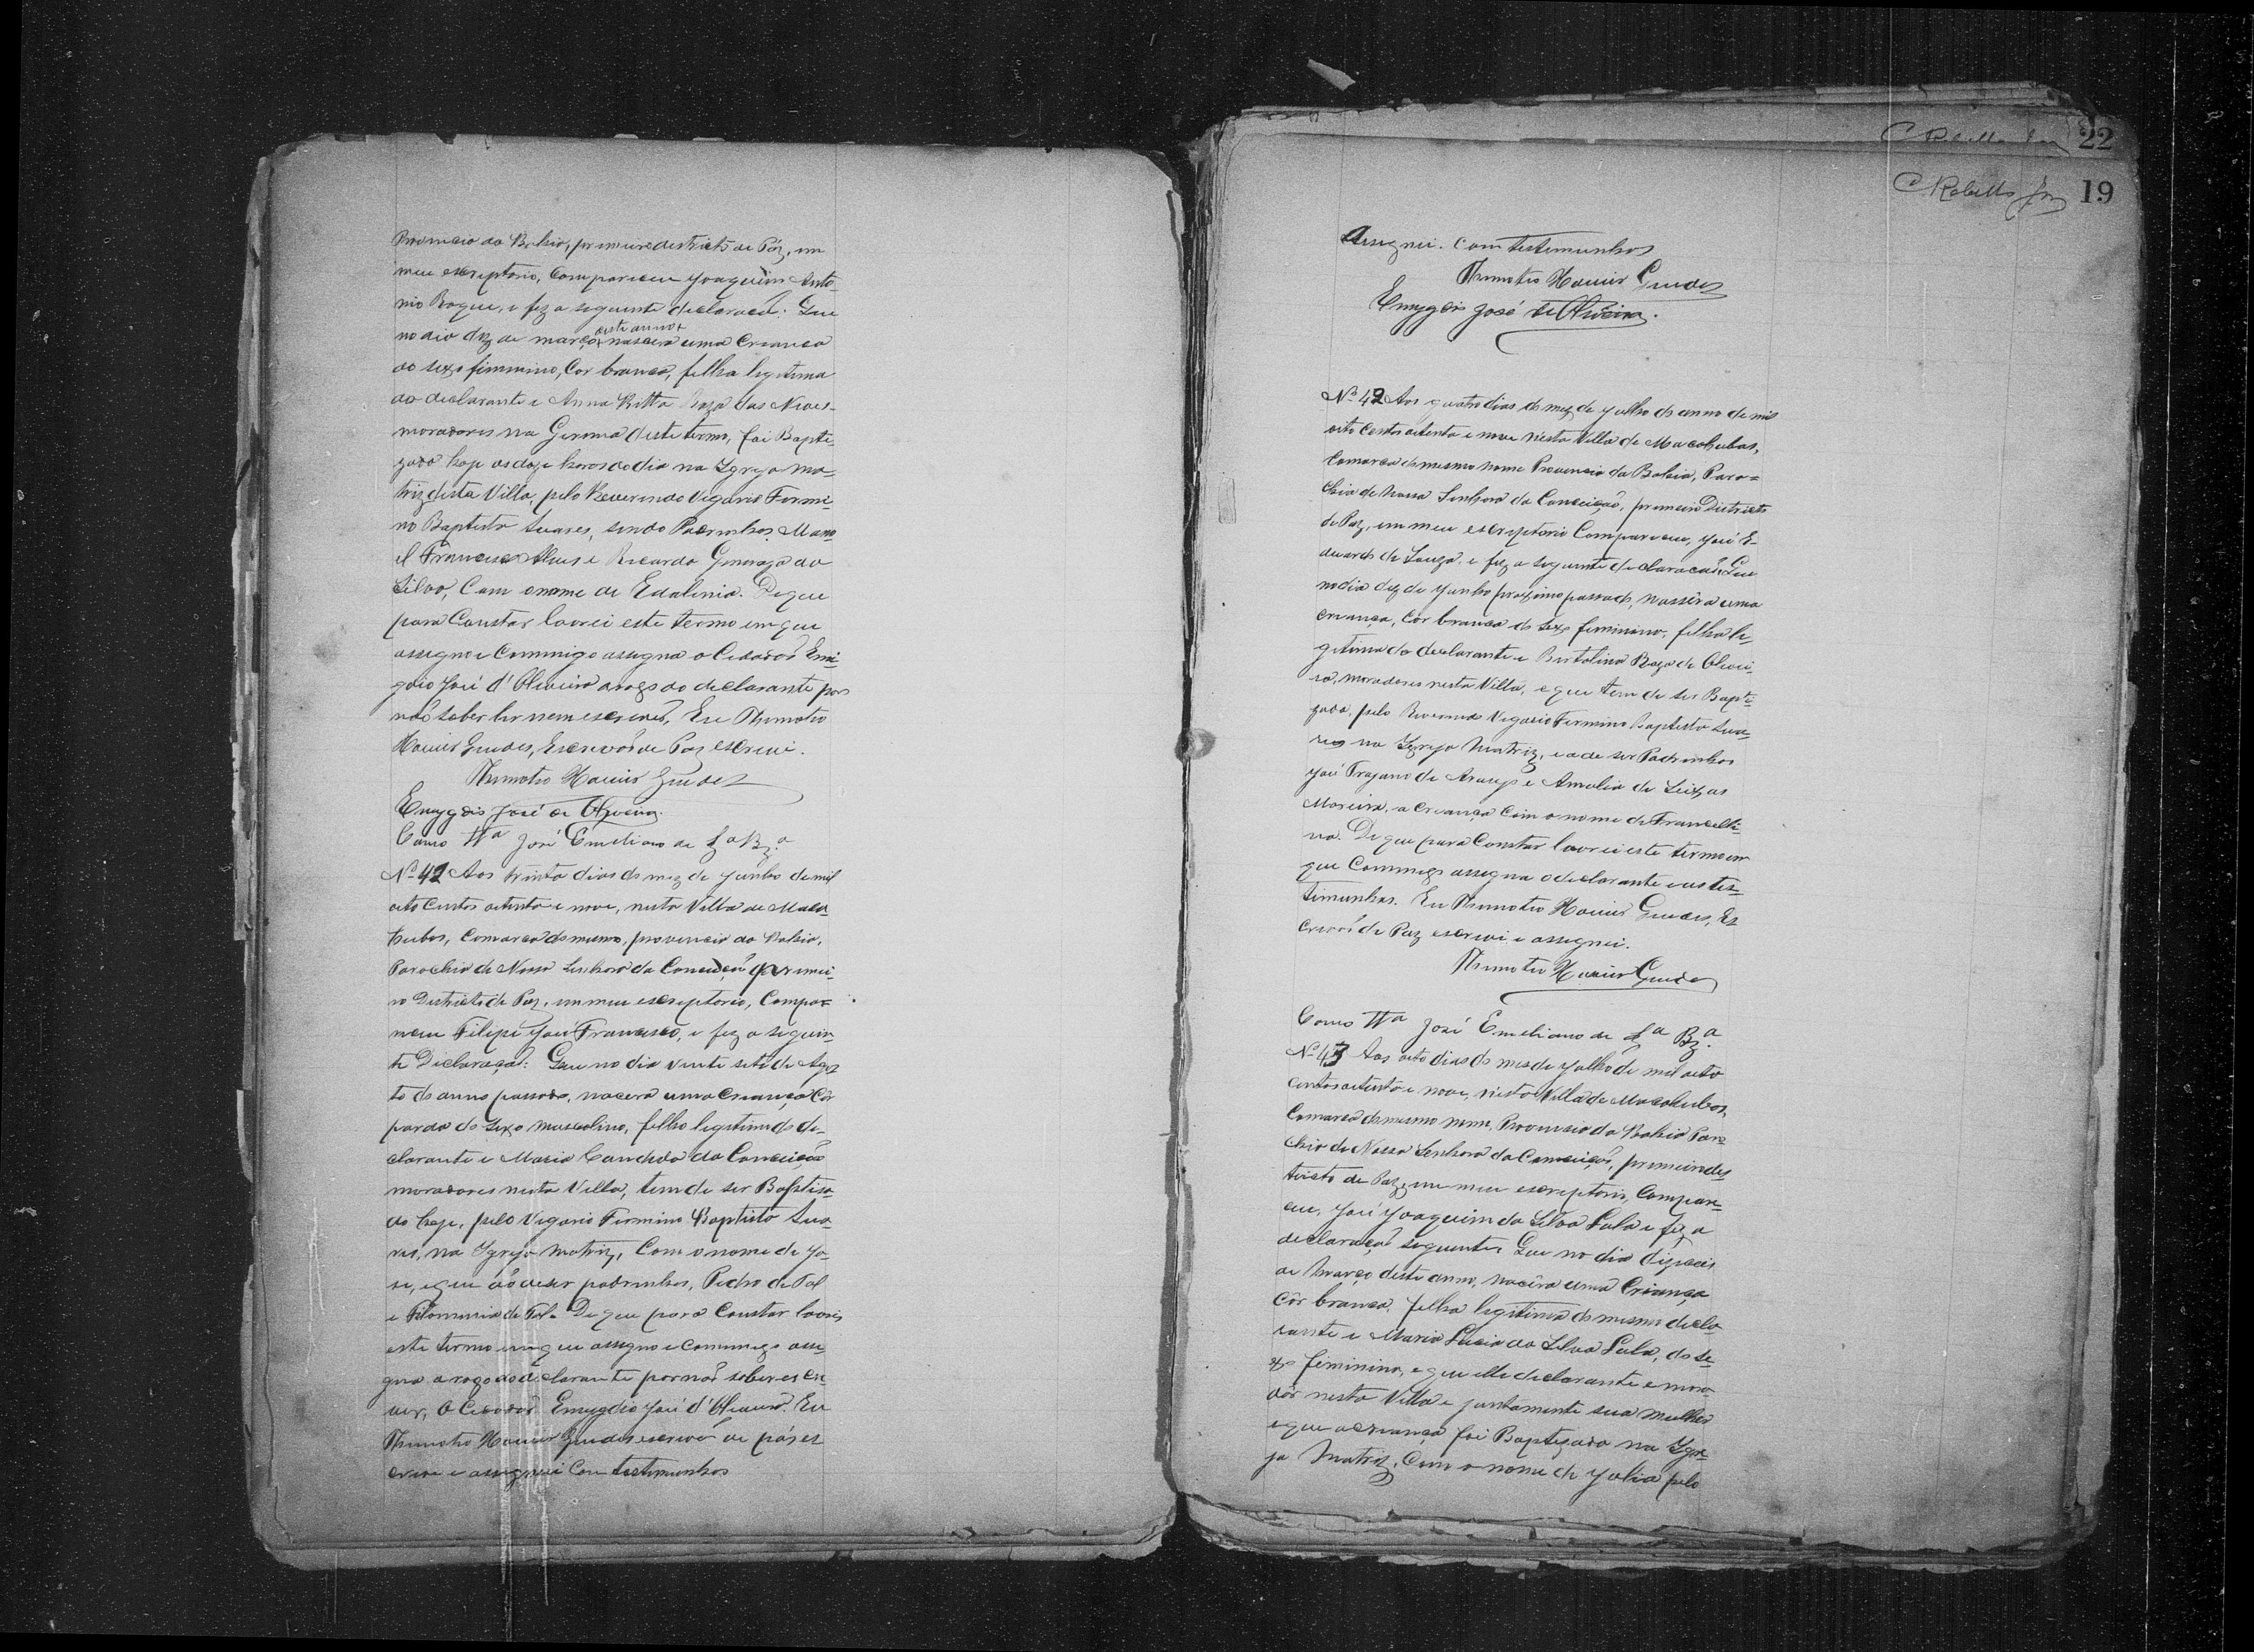 Provincia da Bahia, primeiro destricto de Páz, em
meu escriptorio, compareceu Joaquim Anto-
nio Roque, e fez a seguente declaracaõ: Que
no dia dez de março deste anno nascera uma criança
do sexo feminino, Cor branca, filha legitima
do declarante e Anna Ritta Roza das Neves-
moradores na Gerema deste termo, foi Bapti-
zada hoje as doze horas do dia na Igreja ma-
triz desta Villa, pelo Reverendo Vigario Firmi-
no Baptista Suares, sendo Padrinhos, Mano-
el Francisco Alves e Ricardo Gonzaga da
Silva, Com o nome de Edalinia. De que
para Constar lavrei este termo em que
assigno e Commigo assigna o Cidadaõ Emi-
gdio José d'Oliveira arogo do declarante por
naõ saber ler nem escrever, Eu Thimotio
Xavier Guedes, Escrivaõ de Paz escrevi.
Thimotio Xavier Guedes
Emygdio José de Oliveira.
Como Ttª José Emeliano de Sª Bzª
Nº 41 Aos trinta dias do mez de Junho de mil
oito Centos oitenta e nove, nesta Villa de Maca-
hubas, Comarca do mesmo, provincia da Bahia,
Parochia de Nossa Senhora da Conceiçaõ primei-
ro Districto de Paz, em meu escriptorio, Compar-
receu Filipe José Francisco, e fez a seguin-
te Declaraçaõ: Que no dia vinte sete de Agos-
to do anno passado, nacera uma Criança Côr
parda do Sexo masculino, filho legitimo do de-
clarante e Maria Candida da Conceiçaõ
moradores nesta Villa, tem de ser Baptisa-
do hoje, pelo Vigario Firmino Baptista Sua-
res, na Igreja matriz, Com o nome de Jo-
se, e que aõ de ser padrinhos, Pedro de Tal
e Filomenia de Tal. De que para Constar lavrei
este termo em que assigno e Commigo assi-
gna a rogo do declarante por naõ saber escre-
ver, O Cidadaõ Emygdio José d'Oliveira. Eu
Thimotio Xavier Guedes escrivaõ de páz es
crevi e assignei Com testimunhas
C Rabello Jor 22
C Rabello Jor 19
Assignei. Com testemunhas
Thimotio Xavier Guedes
Emygdio José de Oliveira.
Nº 42 Aos quatro dias do mez de Julho do anno de mil
oito Centos oitenta e nove nésta Villa de Macahubas,
Comarca do mesmo nome Provencia da Bahia, Paro-
chia de Nossa Senhora da Conceiçaõ, primeiro Districto
de Paz, em meu escriptorio Compareceu, José E-
duardo de Souza, e fez a seguinte declaracaõ: Que
no dia dez de Junho proximo passado, nassêra uma
criança, Côr branca do Sexo feminino, filha le-
gitima do declarante e Bertolina Roza de Olivei-
ra, moradores nesta Villa, e que tem de ser Bapti-
zada, pelo Reverendo Vigario Firmino Baptista Sua-
res na Igreja Matriz, e a de ser Padrinhos
José Trajano de Araujo e Amalia de Seixas
Moreira, a Criança Com o nome de Francelli-
na. De que para Constar lavrei este termo em
que Commigo assigna o declarante e as tes-
timunhas. Eu Thimotio Xavier Guedes, Es
crivaõ de Paz escrevi e assignei.
Thimotio Xavier Guedes
Como Ttª José Emeliano de Sª Bzª
Nº 43 Aos oito dias do mes de Julho de mil oito
centos oitenta e nove, nésta Villa de Macahubas,
Comarca do mesmo nome, Provencia da Bahia Paro
chia de Nossa Senhora da Conceiçaõ, primeiro des
tricto de Paz, em meu escriptorio, Compare-
ceu, José Joaquim da Silva Lula e fez a
declaraçaõ seguinte: Que no dia dizeseis
de Março deste anno, nacêra uma Criança
Côr branca, filha legitima do mesmo decla-
rante e Maria Lucia da Silva Lula, do se-
xo feminino, e que elle declarante e mora-
dôr nesta Villa e juntamente sua mulher
e que a criança foi Baptizada na Igre-
ja Matriz, Com o nome de Julia pelo